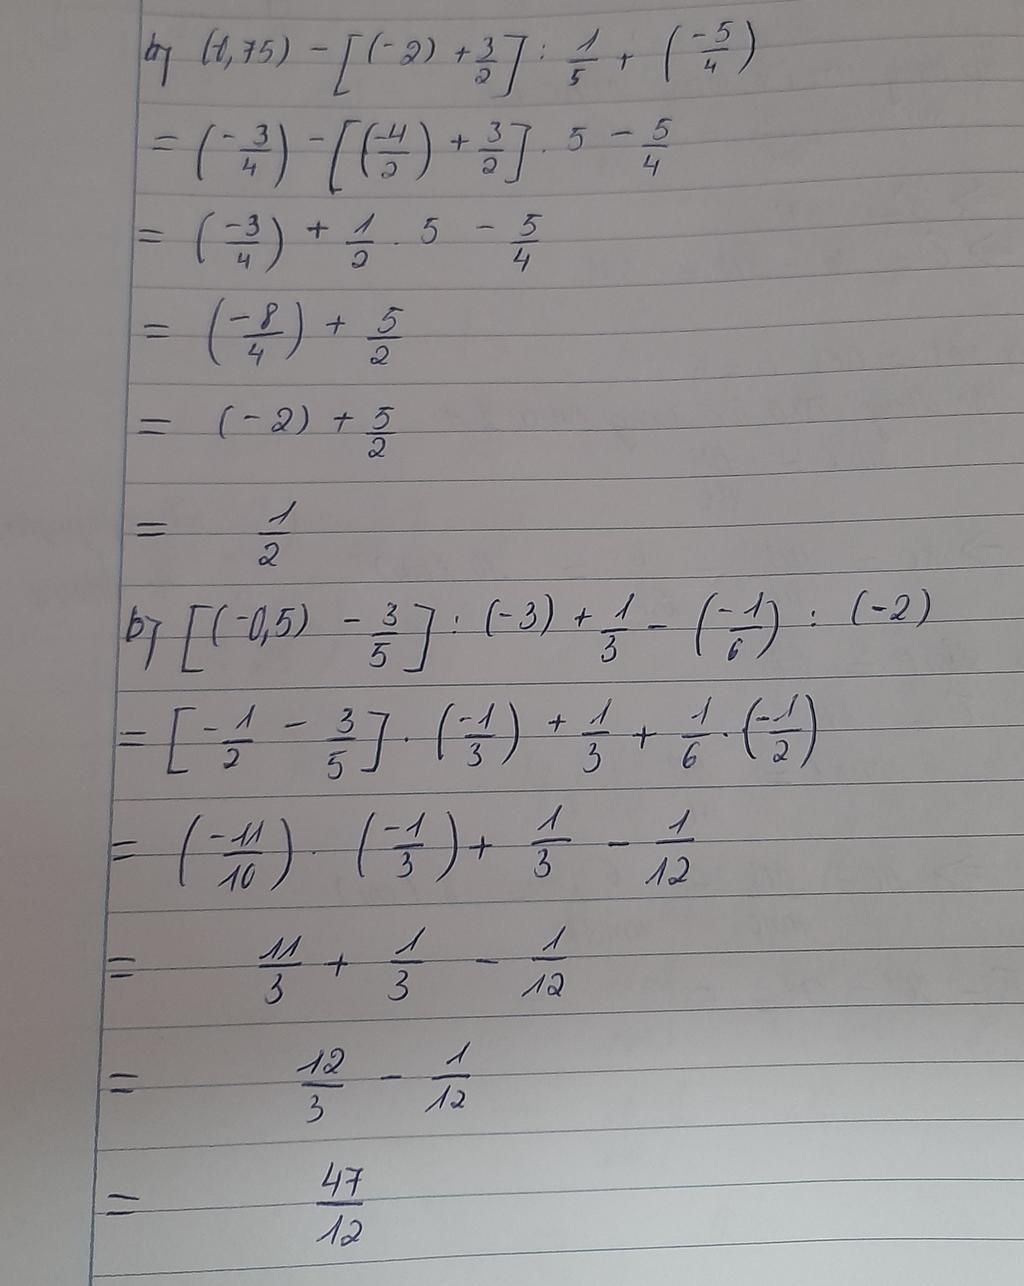 b) (-0,75) - [(-2) + 3/2] : 1/5 + (-5/4)
= (-3/4) - [(-4/2) + 3/2] . 5 - 5/4
= (-3/4) + 1/2 . 5 - 5/4
= (-8/4) + 5/2
= (-2) + 5/2
= 1/2
b) [(-0,5) - 3/5] : (-3) + 1/3 - (-1/6) : (-2)
= [-1/2 - 3/5] . (-1/3) + 1/3 + 1/6 . (-1/2)
= (-11/10) . (-1/3) + 1/3 - 1/12
= 11/3 + 1/3 - 1/12
= 12/3 - 1/12
= 47/12